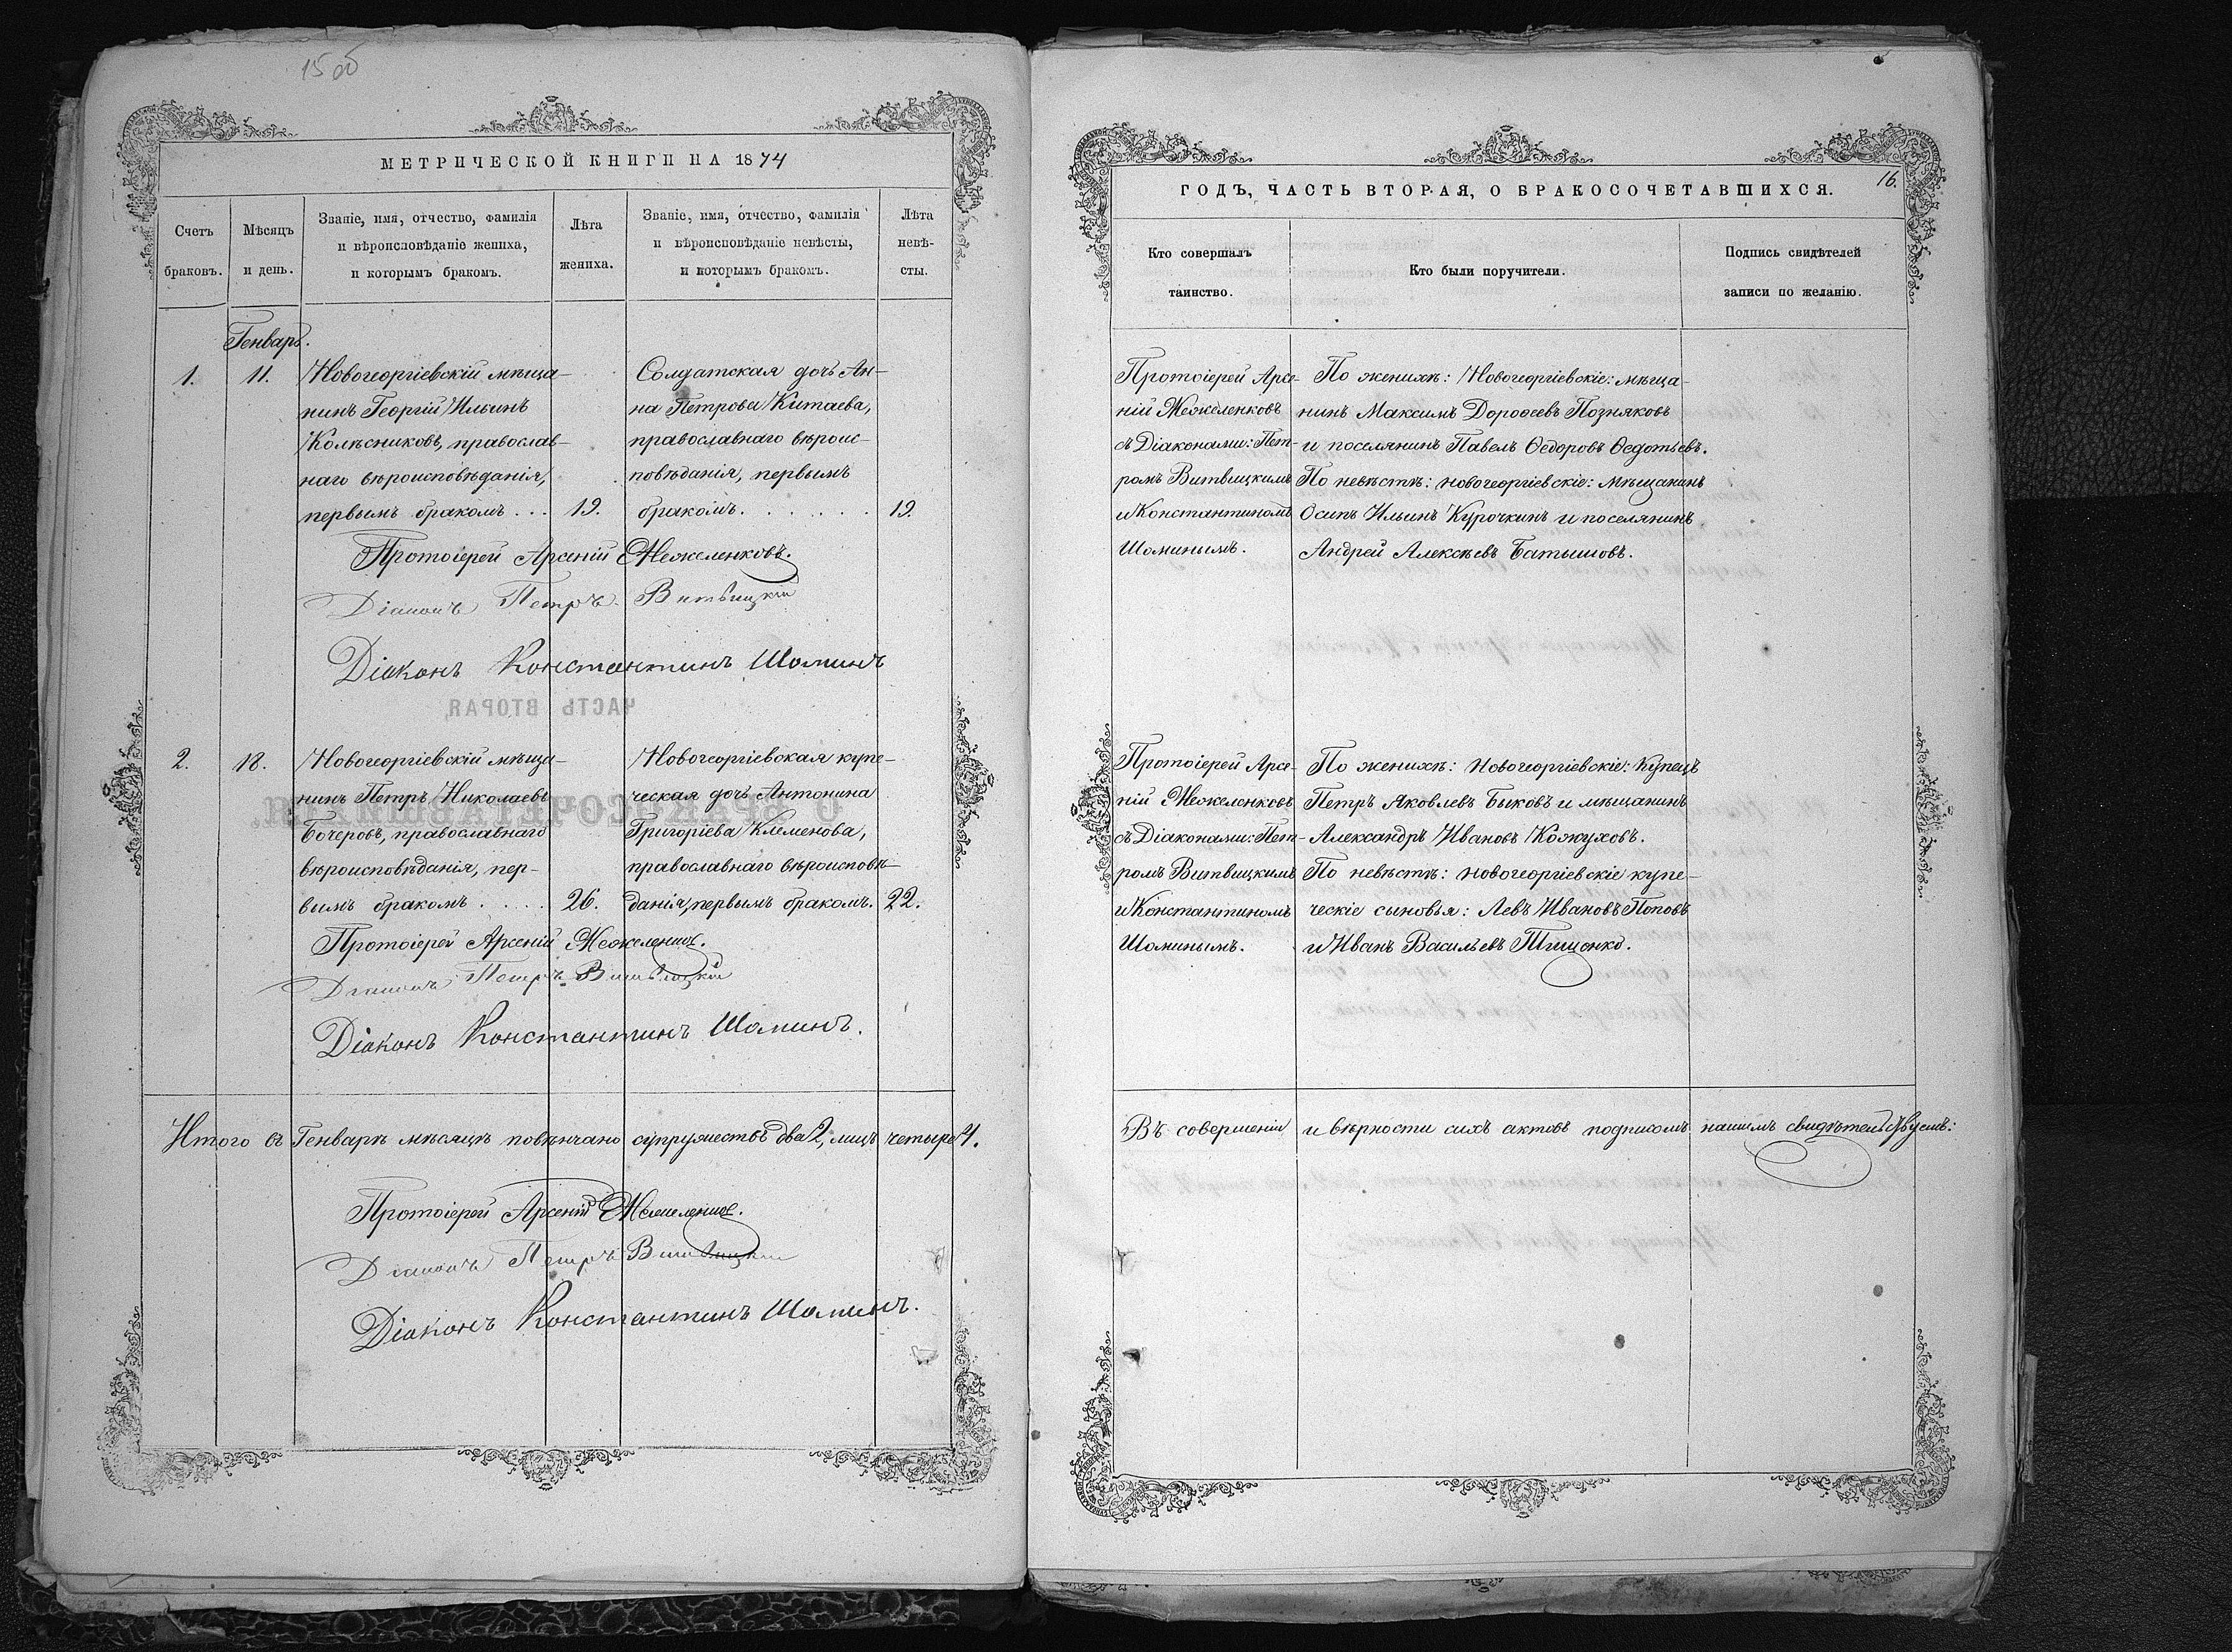 15 об
МЕТРИЧЕСКОЙ КНИГИ НА 1874
Счетъ браковъ.
Мѣсяцъ и день.
Званіе, имя, отчество, фамилія
и вѣроисповѣданіе жениха,
и которымъ бракомъ.
Лѣта
жениха.
Званіе, имя, отчество, фамилія
и вѣроисповѣданіе невѣсты,
и которымъ бракомъ.
Лѣта
невѣ-
сты.
Генварь.
1.
11.
Новогеоргіевскій мѣща-
нинъ Георгій Ильинъ
Колѣсниковъ, православ-
наго вѣроисповѣданія,
первымъ бракомъ . . .
19.
Солдатская дочь Ан-
на Петрова Китаева,
православнаго вѣроис-
повѣданія, первымъ
бракомъ. . . . . . .
19.
Протоіерей Арсеній Нежеленковъ.
Діаконъ Петръ Витвицкій
Діаконъ Константинъ Шоминъ
ЧАСТЬ ВТОРАЯ
О БРАКОСОЧЕТАВШИХСЯ.
2.
18.
Новогеоргіевскій мѣща-
нинъ Петръ Николаевъ
Бочеровъ, православнаго
вѣроисповѣданія, пер-
вымъ бракомъ . . . .
26.
Новогеоргіевская купе-
ческая дочь Антонина
Григоріева Клеменова,
православнаго вѣроисповѣ-
данія, первымъ бракомъ.
22.
Протоіерей Арсеній Нежеленковъ.
Діаконъ Петръ Витвицкій
Діаконъ Константинъ Шоминъ.
Итого въ Генварѣ мѣсяцѣ повѣнчано супружествъ два 2, лицъ четыре 4.
Протоіерей Арсеній Нежеленковъ.
Діаконъ Петръ Витвицкій
Діаконъ Константинъ Шоминъ.
16.
ГОДЪ, ЧАСТЬ ВТОРАЯ, О БРАКОСОЧЕТАВШИХСЯ.
Кто совершалъ
таинство.
Кто были поручители.
Подпись свидѣтелей
записи по желанію.
Протоіерей Арсе-
ній Нежеленковъ
съ Діаконами: Пет-
ромъ Витвицкимъ
и Константиномъ
Шоминымъ.
По женихѣ: Новогеоргіевскіе: мѣща-
нинъ Максимъ Дороѳеевъ Позняковъ
и поселянинъ Павелъ Ѳедоровъ Ѳедотьевъ.
По невѣстѣ: новогеоргіевскіе: мѣщанинъ
Осипъ Ильинъ Курочкинъ и поселянинъ
Андрей Алексѣевъ Батышовъ.
Протоіерей Арсе-
ній Нежеленковъ
съ Діаконами: Пет-
ромъ Витвицкимъ
и Константиномъ
Шоминымъ.
По женихѣ: Новогеоргіевскіе: Купецъ
Петръ Яковлевъ Быковъ и мѣщанинъ
Александръ Ивановъ Кожуховъ.
По невѣстѣ: новогеоргіевскіе купе-
ческіе сыновья: Левъ Ивановъ Поповъ
и Иванъ Васильевъ Тищенко.
Въ совершеніи и вѣрности сихъ актовъ подписомъ нашимъ свидѣтельствуемъ: